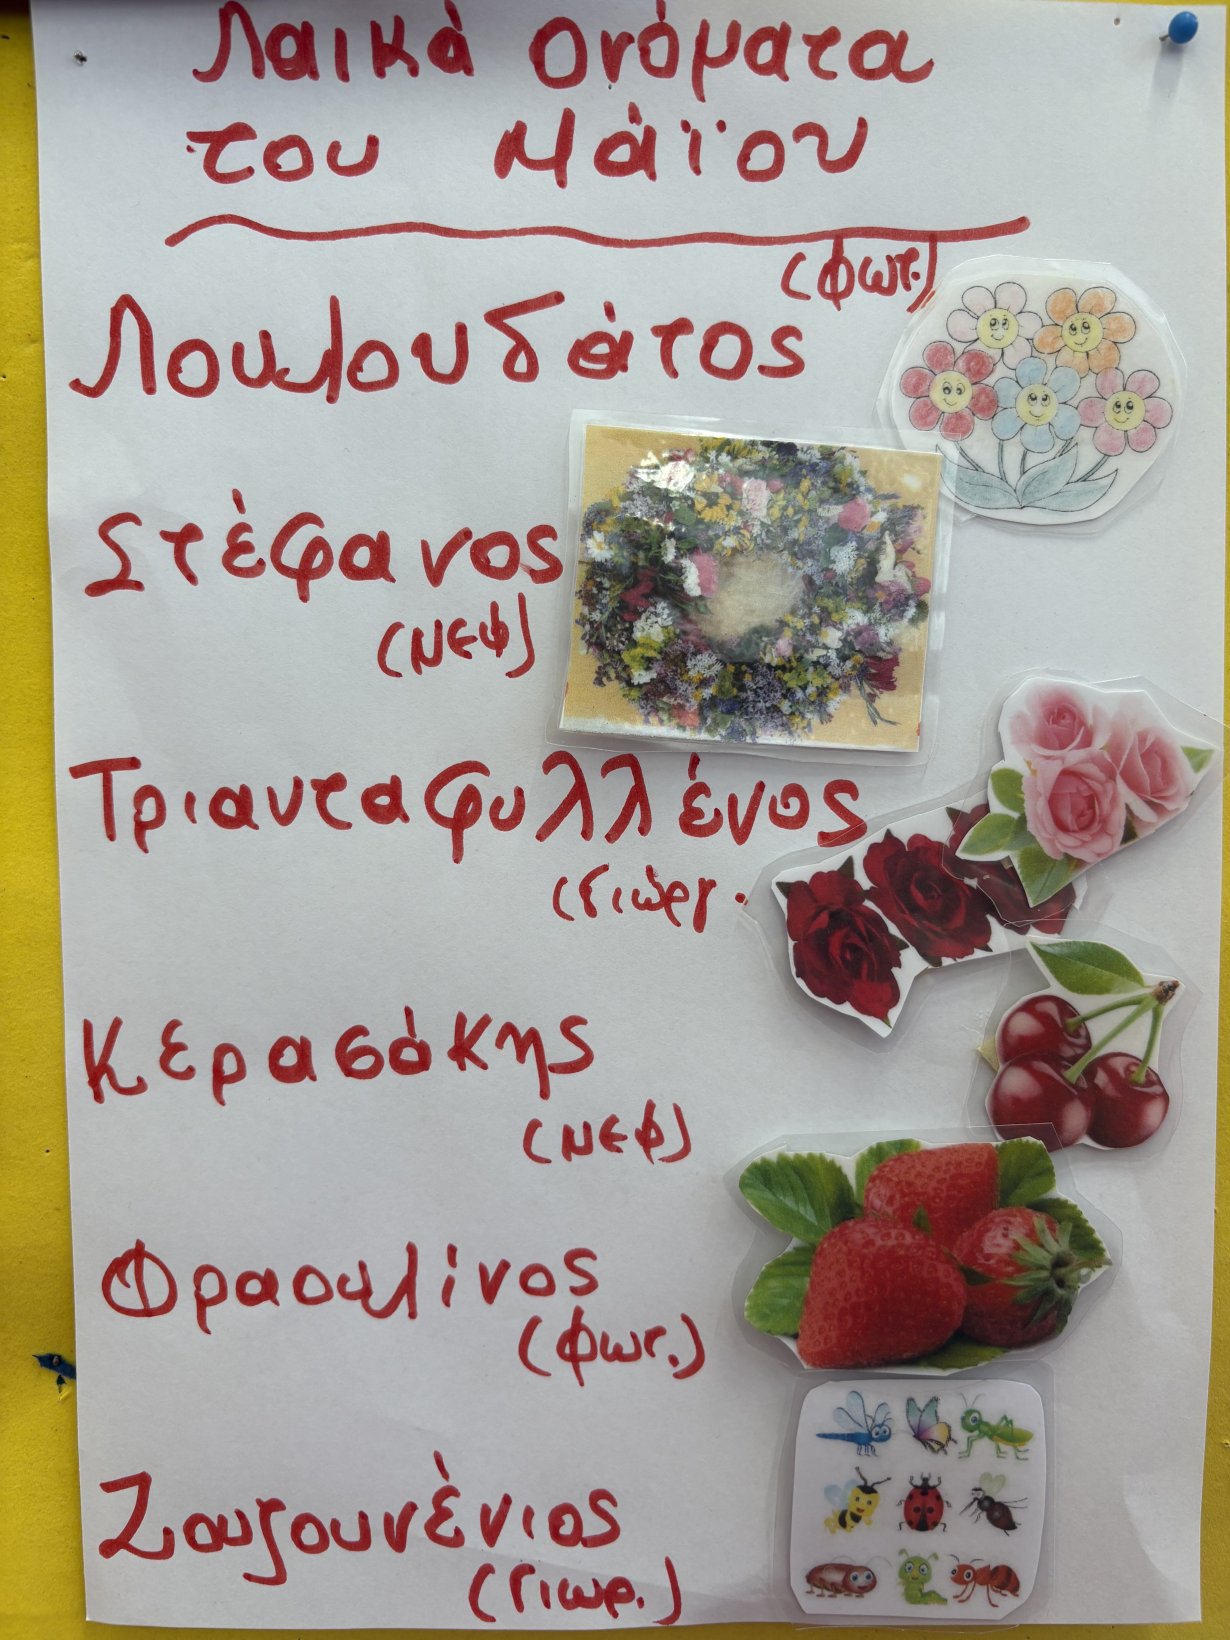 Λαικά ονόματα
του Μάϊου
(φωτ.)
Λουλουδάτος
Στέφανος
(νεφ)
Τριανταφυλλένος
(Γιώργ.
Κερασάκης
(νεφ)
Φραουλίνος
(φωτ.)
Ζουζουνένιος
(Γιωρ.)